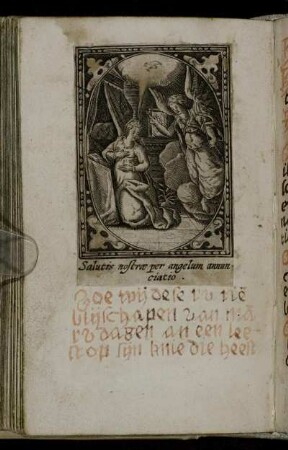 Salutis nostræ per angelum annun
ciatio.
Hoe wij dese
blijschapen van ma
dagen an een
op sijn knie die heeft